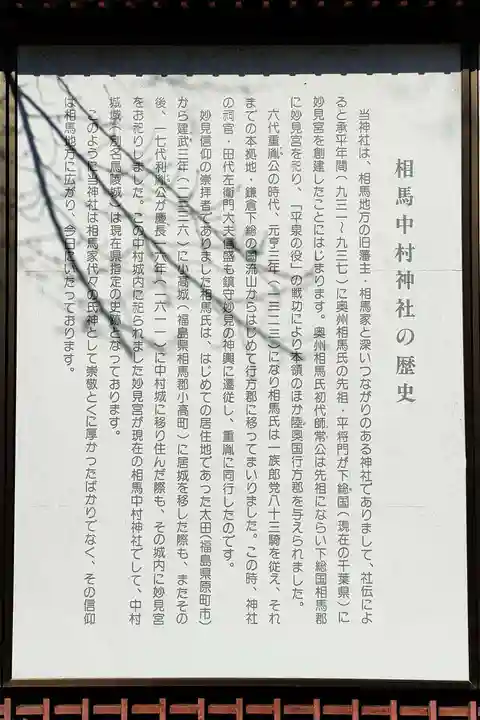 相馬中村神社の歴史
当神社は、相馬地方の旧藩主・相馬家と深いつながりのある神社でありまして、社伝によ
ると承平年間(九三一〜九三七)に奥州相馬氏の先祖・平将門が下総国(現在の千葉県)に
妙見宮を創建したことにはじまります。奥州相馬氏初代師常公は先祖にならい下総国相馬郡
に妙見宮を祀り、「平泉の役」の戦功により本領のほか陸奥国行方郡を与えられました。
六代重胤公の時代、元亨三年(一三二三)になり相馬氏は一族郎党八十三騎を従え、それ
までの本拠地・鎌倉下総の国流山からはじめて行方郡に移ってまいりました。この時、神社
の祠官・田代左衛門大夫信盛も鎮守妙見の神輿に遷従し、重胤に同行したのです。
妙見信仰の崇拝者でありました相馬氏は、はじめての居住地であった太田(福島県原町市)
から建武三年(一三三六)に小高城(福島県相馬郡小高町)に居城を移した際も、またその
後、一七代利胤公が慶長一六年(一六一一)に中村城に移り住んだ際も、その城内に妙見宮
をお祀りしました。この中村城内に祀られました妙見宮が現在の相馬中村神社でして、中村
城趾(別名馬陵城)は現在県指定の史跡となっております。
このように当神社は相馬家代々の氏神として崇敬とくに厚かったばかりでなく、その信仰
は相馬地方に広がり、今日にいたっております。